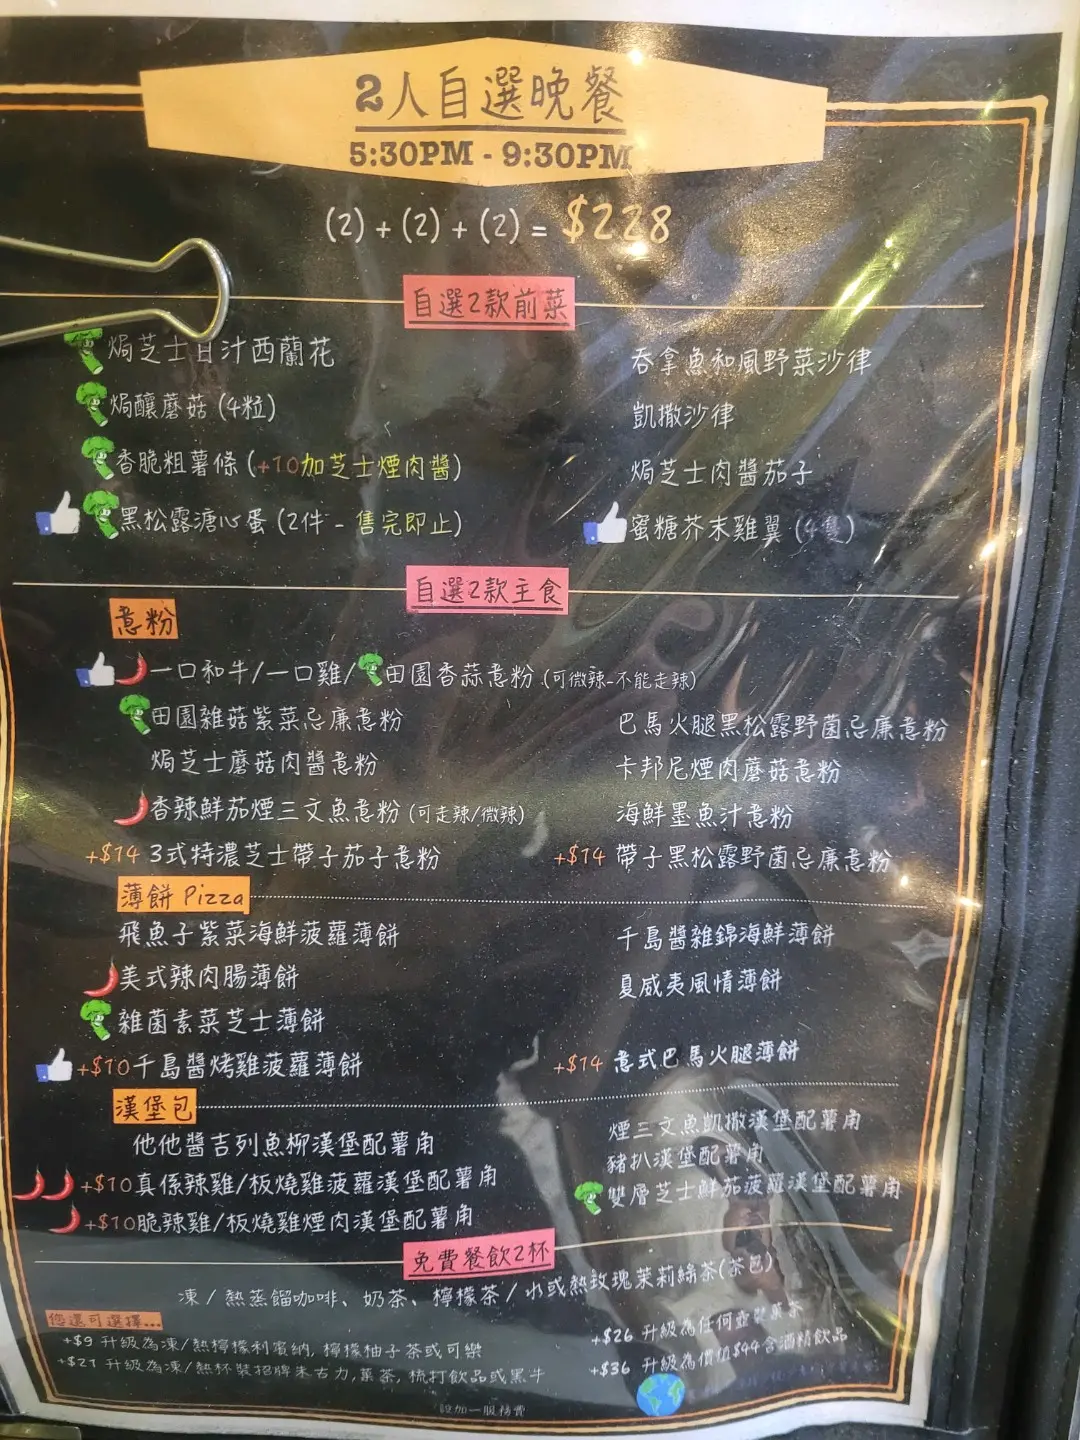 2人自選晚餐
5:30PM - 9:30PM
(2) + (2) + (2) = $228
自選2款前菜
焗芝士白汁西蘭花
焗釀蘑菇 (4粒)
香脆粗薯條 (+10加芝士煙肉醬)
黑松露溏心蛋 (2件 - 售完即止)
吞拿魚和風野菜沙律
凱撒沙律
焗芝士肉醬茄子
蜜糖芥末雞翼 (4隻)
自選2款主食
意粉
一口和牛/一口雞/田園香蒜意粉 (可微辣-不能走辣)
田園雜菇紫菜忌廉意粉
焗芝士蘑菇肉醬意粉
香辣鮮茄煙三文魚意粉 (可走辣/微辣)
+$14 3式特濃芝士帶子茄子意粉
巴馬火腿黑松露野菌忌廉意粉
卡邦尼煙肉蘑菇意粉
海鮮墨魚汁意粉
+$14 帶子黑松露野菌忌廉意粉
薄餅 Pizza
飛魚子紫菜海鮮菠蘿薄餅
美式辣肉腸薄餅
雜菌素菜芝士薄餅
+$10千島醬烤雞菠蘿薄餅
千島醬雜錦海鮮薄餅
夏威夷風情薄餅
+$14 意式巴馬火腿薄餅
漢堡包
他他醬吉列魚柳漢堡配薯角
+$10真係辣雞/板燒雞菠蘿漢堡配薯角
+$10脆辣雞/板燒雞煙肉漢堡配薯角
煙三文魚凱撒漢堡配薯角
豬扒漢堡配薯角
雙層芝士鮮茄菠蘿漢堡配薯角
免費餐飲2杯
凍 / 熱蒸餾咖啡、奶茶、檸檬茶 / 水或熱玫瑰茉莉綠茶(茶包)
您還可選擇...
+$9 升級為凍/熱檸檬利賓納, 檸檬柚子茶或可樂
+$21 升級為凍/熱杯裝招牌朱古力, 菓茶, 梳打飲品或黑牛
+$26 升級為任何壺裝菓茶
+$36 升級為價值$44含酒精飲品
設加一服務費